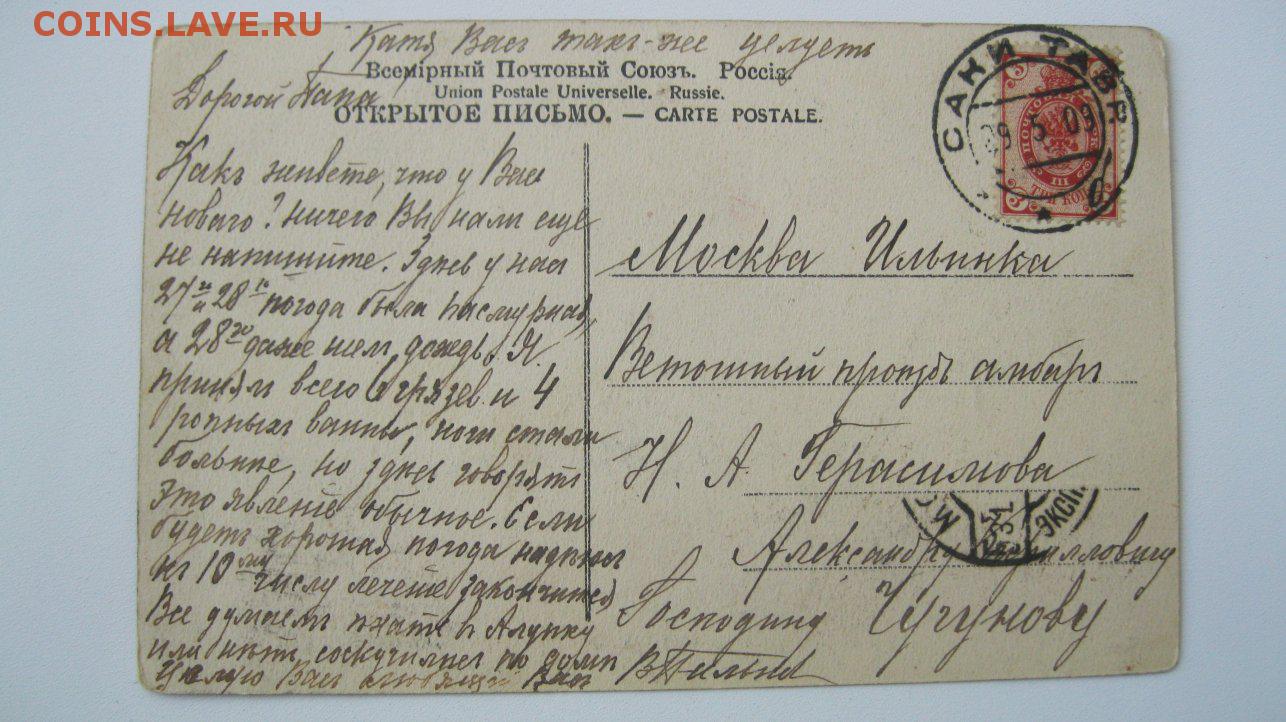 COINS.LAVE.RU
Катя Васъ такъ-же цѣлуетъ
Всемірный Почтовый Союзъ. Россія.
Union Postale Universelle. Russie.
ОТКРЫТОЕ ПИСЬМО. — CARTE POSTALE.
Дорогой Папа,
Какъ живете, что у Васъ
новаго? ничего Вы намъ еще
не напишите. Здѣсь у насъ
27го и 28го погода была пасмурная,
а 28го даже шелъ дождь. Я
принялъ всего 6 грязев. и 4
ропныхъ ванны, ноги стали
больнѣе, но здѣсь говорятъ
это явленіе обычное. Если
будетъ хорошая погода надѣюсь
къ 10ому числу леченіе закончится
Все думаемъ ѣхать в Алупку
или нѣтъ, соскучились по домѣ
Цѣлую Васъ любящій Васъ
САКИ ТАВР.
5 09
б
ПОЧТОВАЯ МАРКА
III
ТРИ КОП.
3 3
Москва Ильинка
Ветошный проѣздъ амбаръ
Н. А. Герасимова
МО ЭКСП.
Александру Кирилловичу
Господину Чугунову